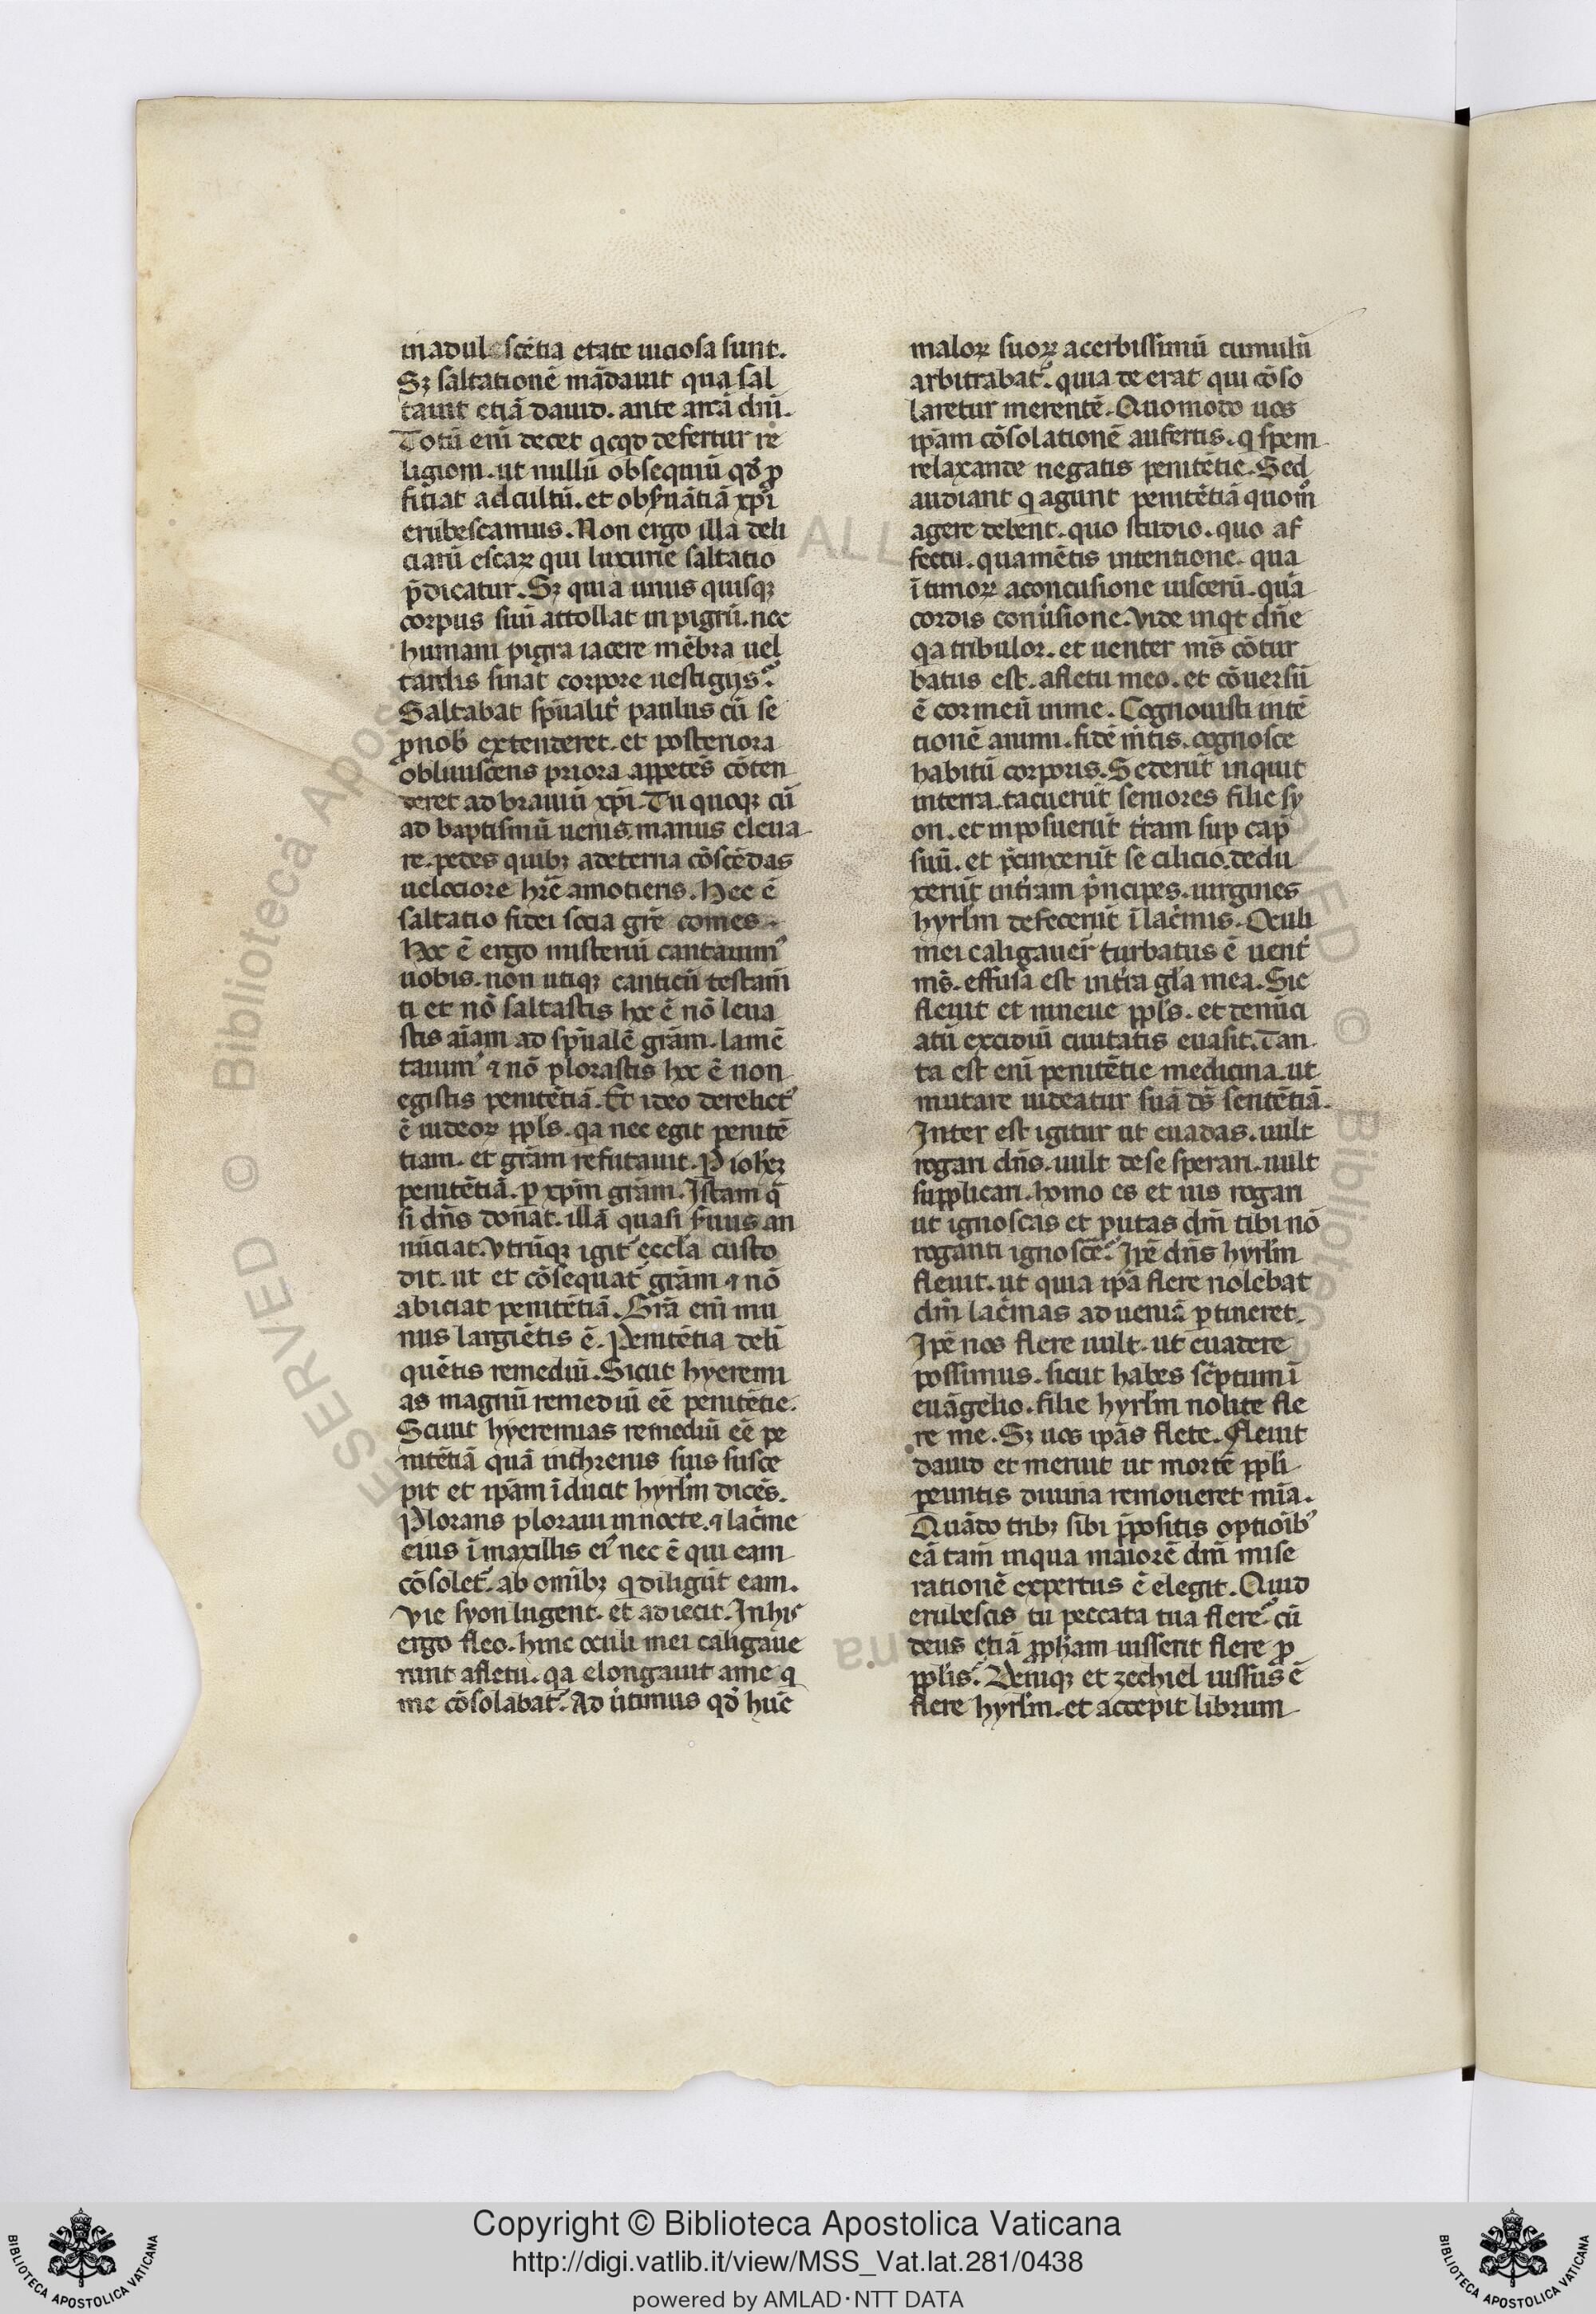 inadulescētia etate uiciosa sunt.
Sꝫ saltationē mādauit qua sal
tauit etiā dauid. ante arcā dn̄i.
Totū eni decet qcqd defertur re
ligioni. ut nullū obsequiū qđ ꝓ
ficiat ad cultū. et obẜuātiā xp̄i
erubescamus. Non ergo illa deli
ciarū escaꝝ qui luxurie saltatio
p̄dicatur. Sꝫ qui a unus quisqꝫ
corpus suū attollat in pigrū. nec
humani pigra iacere mēbra uel
tardis sinat corpore uestigijs.
Saltabat sp̄ualit̉ paulus cū se
ꝓnob̉ extenderet. et posteriora
obliuiscēns priora appetēs cōten
deret ad brauiū xp̄i. Tu quoqꝫ cū
ad baptismū uenis. manus eleua
re. pedes quibꝫ adeterna cōscēdas
uelociore hr̄e amoneris. Hec ē
saltatio fidei socia gr̄e comes
Hoc ē ergo misteriū cantauim᾿
uobis. non utiqꝫ canticū testam̄
ti et nō saltastis hoc ē nō leua
stis aīam ad sp̄ualē gr̄am. lamē
tauim᾿ ⁊ nō plorastis hoc ē non
egistis penitētiā. Et ideo derelict᾿
ē iudeoꝝ ppl̄s. qa nec egit penitē
tiam. et gr̄am refutauit. P̲ ioh̄eꝫ
penitētiā. ꝑ xp̄m gr̄am. Istam q̄
si dn̄s don̄at. illā quasi ẜuus an
nūciat. Vtrūqꝫ igit᾿ eccl̄a custo
dit. ut et cōsequat᾿ gr̄am ⁊ nō
abiciat penitētiā. Gr̄a eni mu
nus largiētis ē. Penitētia deli
quētis remediū. Sicut hyeremi
as magnū remediū eē penitētie.
Sciuit hyeremias remediū eē pe
nitētiā quā inthrenis suis susce
pit et ip̄am īducit hyrlm̄ dicēs.
Plorans plorauit in nocte. ⁊ lac̄me
eius ī maxillis ei᾿ nec ē qui eam
cōsolet᾿. ab omībꝫ q diligūt eam.
Vie syon lugent. et adiecit. In his
ergo fleo. hinc oculi mei caligaue
runt afletu. qa elongauit ame q
me cōsolabat᾿. Ad utimus qđ huc
maloꝝ suoꝝ acerbissimū cumulū
arbitrabat᾿. quia de erat qui cōso
laretur merentē. Quomodo uos
ip̄am cōsolationē aufertis. q spem
relaxande negatis penitētie. Sed
audiant q agunt penitētiā quom̊
agere debent. quo studio. quo af
fectu. qua mētis intentione. qua
ītimoꝝ aconcusione uiscerū. qua
cordis conūsione. Vide inqt dn̄e
qa tribulor. et uenter ms̄ cōtur
batus est. afletu meo. et cōuersū
ē cor meū inme. Cognouisti intē
tionē animi. fidē m̄tis. cognosce
habitū corporis. Sederūt inquit
interra. tacuerūt seniores filie sy
on. et inposuerūt tr̄am sup cap̄
suū. et p̄cinxerūt se cilicio. dedu
xerūt intr̄am p̄ncipes. uirgines
hyrlm̄ defecerūt ī lac̄mis. Oculi
mei caligauer̄ turbatus ē uent̉
ms̄. effusa est intr̄a gl̄a mea. Sic
fleuit et niniue ppl̄s. et denūci
atū excidiū ciuitatis euasit. Tan
ta est eni penitētie medicina. ut
mutare uideatur suā ds̄ sentētiā.
Inter est igitur ut euadas. uult
rogari dn̄s. uult de se sperari. uult
supplicari. homo es et uis rogari
ut ignoscas et putas dm̄ tibi nō
roganti ignoscē᾿. Ip̄e dn̄s hyrlm̄
fleuit. ut quia ip̄a flere nolebat
dm̄ lac̄mas ad ueniā ꝑtineret.
Ip̄e nos flere uult. ut euadere
possimus. sicut habes sc̄ptum ī
euāgelio. filie hyrlm̄ nolite fle
re me. Sꝫ uos ip̄as flete. Fleuit
dauid et meruit ut mortē ppl̄i
ꝑeuntis diuina remoueret mīa.
Quādo tribꝫ sibi p̄positis optioīb᾿
eā tam̄ inqua maiorē dm̄ mise
rationē expertus ē elegit. Quid
erubescis tu peccata tua flere. cū
deus etiā ꝓph̄am iusserit flere ꝓ
ppl̄is. Deniqꝫ et zechiel iussus ē
flere hyrlm̄. et accepit librum
Copyright © Biblioteca Apostolica Vaticana
http://digi.vatlib.it/view/MSS_Vat.lat.281/0438
powered by AMLAD·NTT DATA